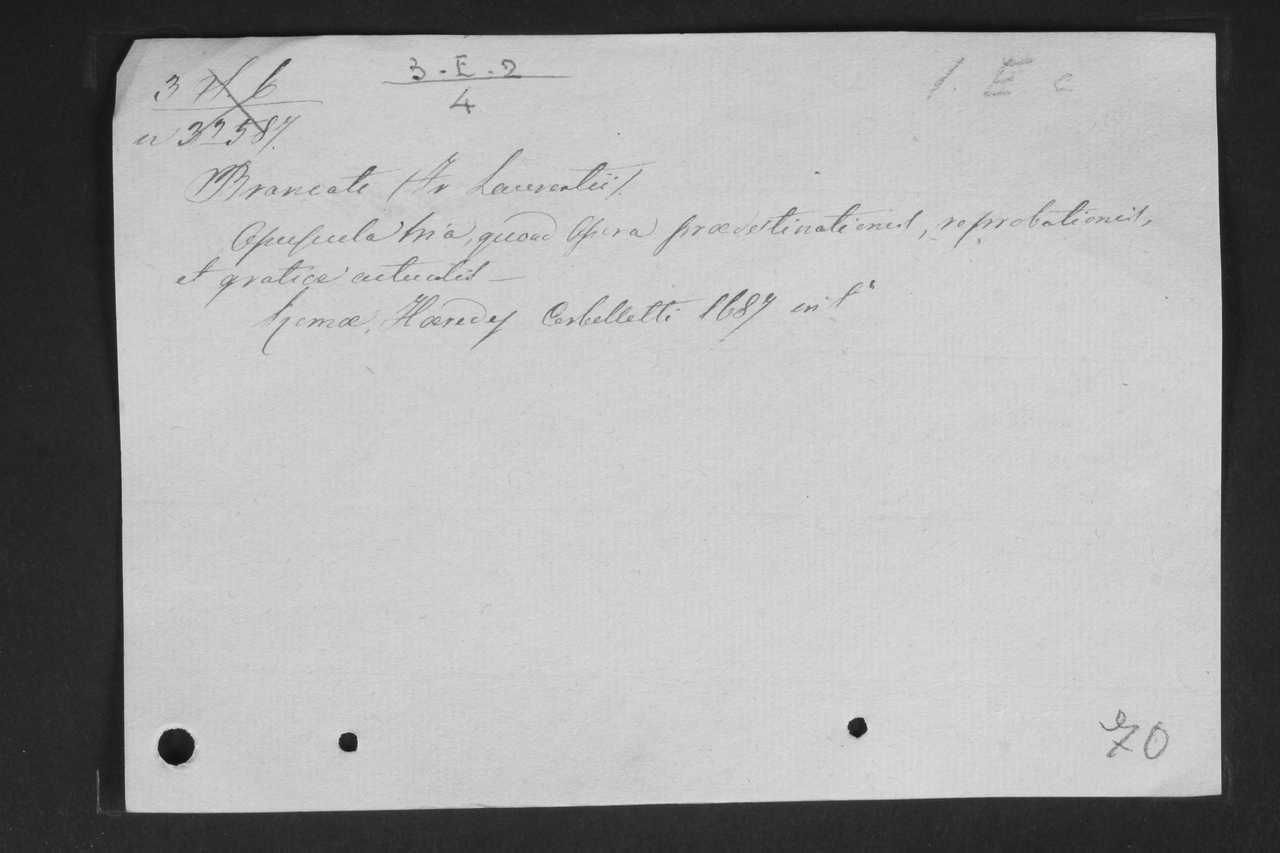 3 H 6
3-E-2
1. E c
n 32587.
4
Brancate (Fr Laurentii)
Opuscula tria, quoad Opera prædestinationis, reprobationis,
et gratiæ actualis —
Romæ, Hæredes Corbelletti 1687 in f°
70